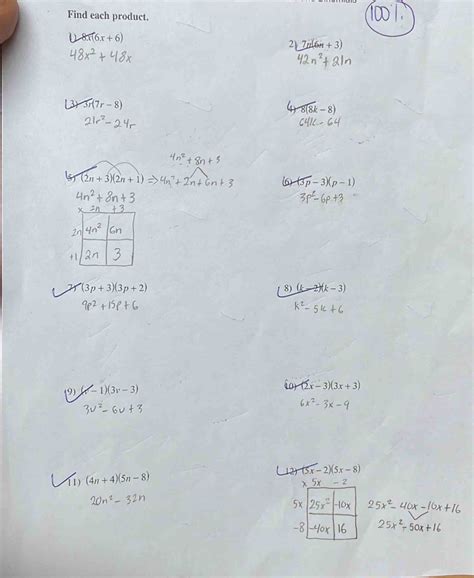 100%
Find each product.
1) 8x(6x + 6)
48x² + 48x
2) 7n(6n + 3)
42n² + 21n
3) 3r(7r − 8)
21r² − 24r
4) 8(8k − 8)
64k − 64
4n² + 8n + 3
5) (2n + 3)(2n + 1) ⇒ 4n² + 2n + 6n + 3
4n² + 8n + 3
x 2n +3
2n 4n² 6n
+1 2n 3
6) (3p − 3)(p − 1)
3p² − 6p + 3
7) (3p + 3)(3p + 2)
9p² + 15p + 6
8) (k − 2)(k − 3)
k² − 5k + 6
9) (v − 1)(3v − 3)
3v² − 6v + 3
10) (2x − 3)(3x + 3)
6x² − 3x − 9
11) (4n + 4)(5n − 8)
20n² − 32n
12) (5x − 2)(5x − 8)
x 5x − 2
5x 25x² −10x
−8 −40x 16
25x² − 40x − 10x + 16
25x² − 50x + 16